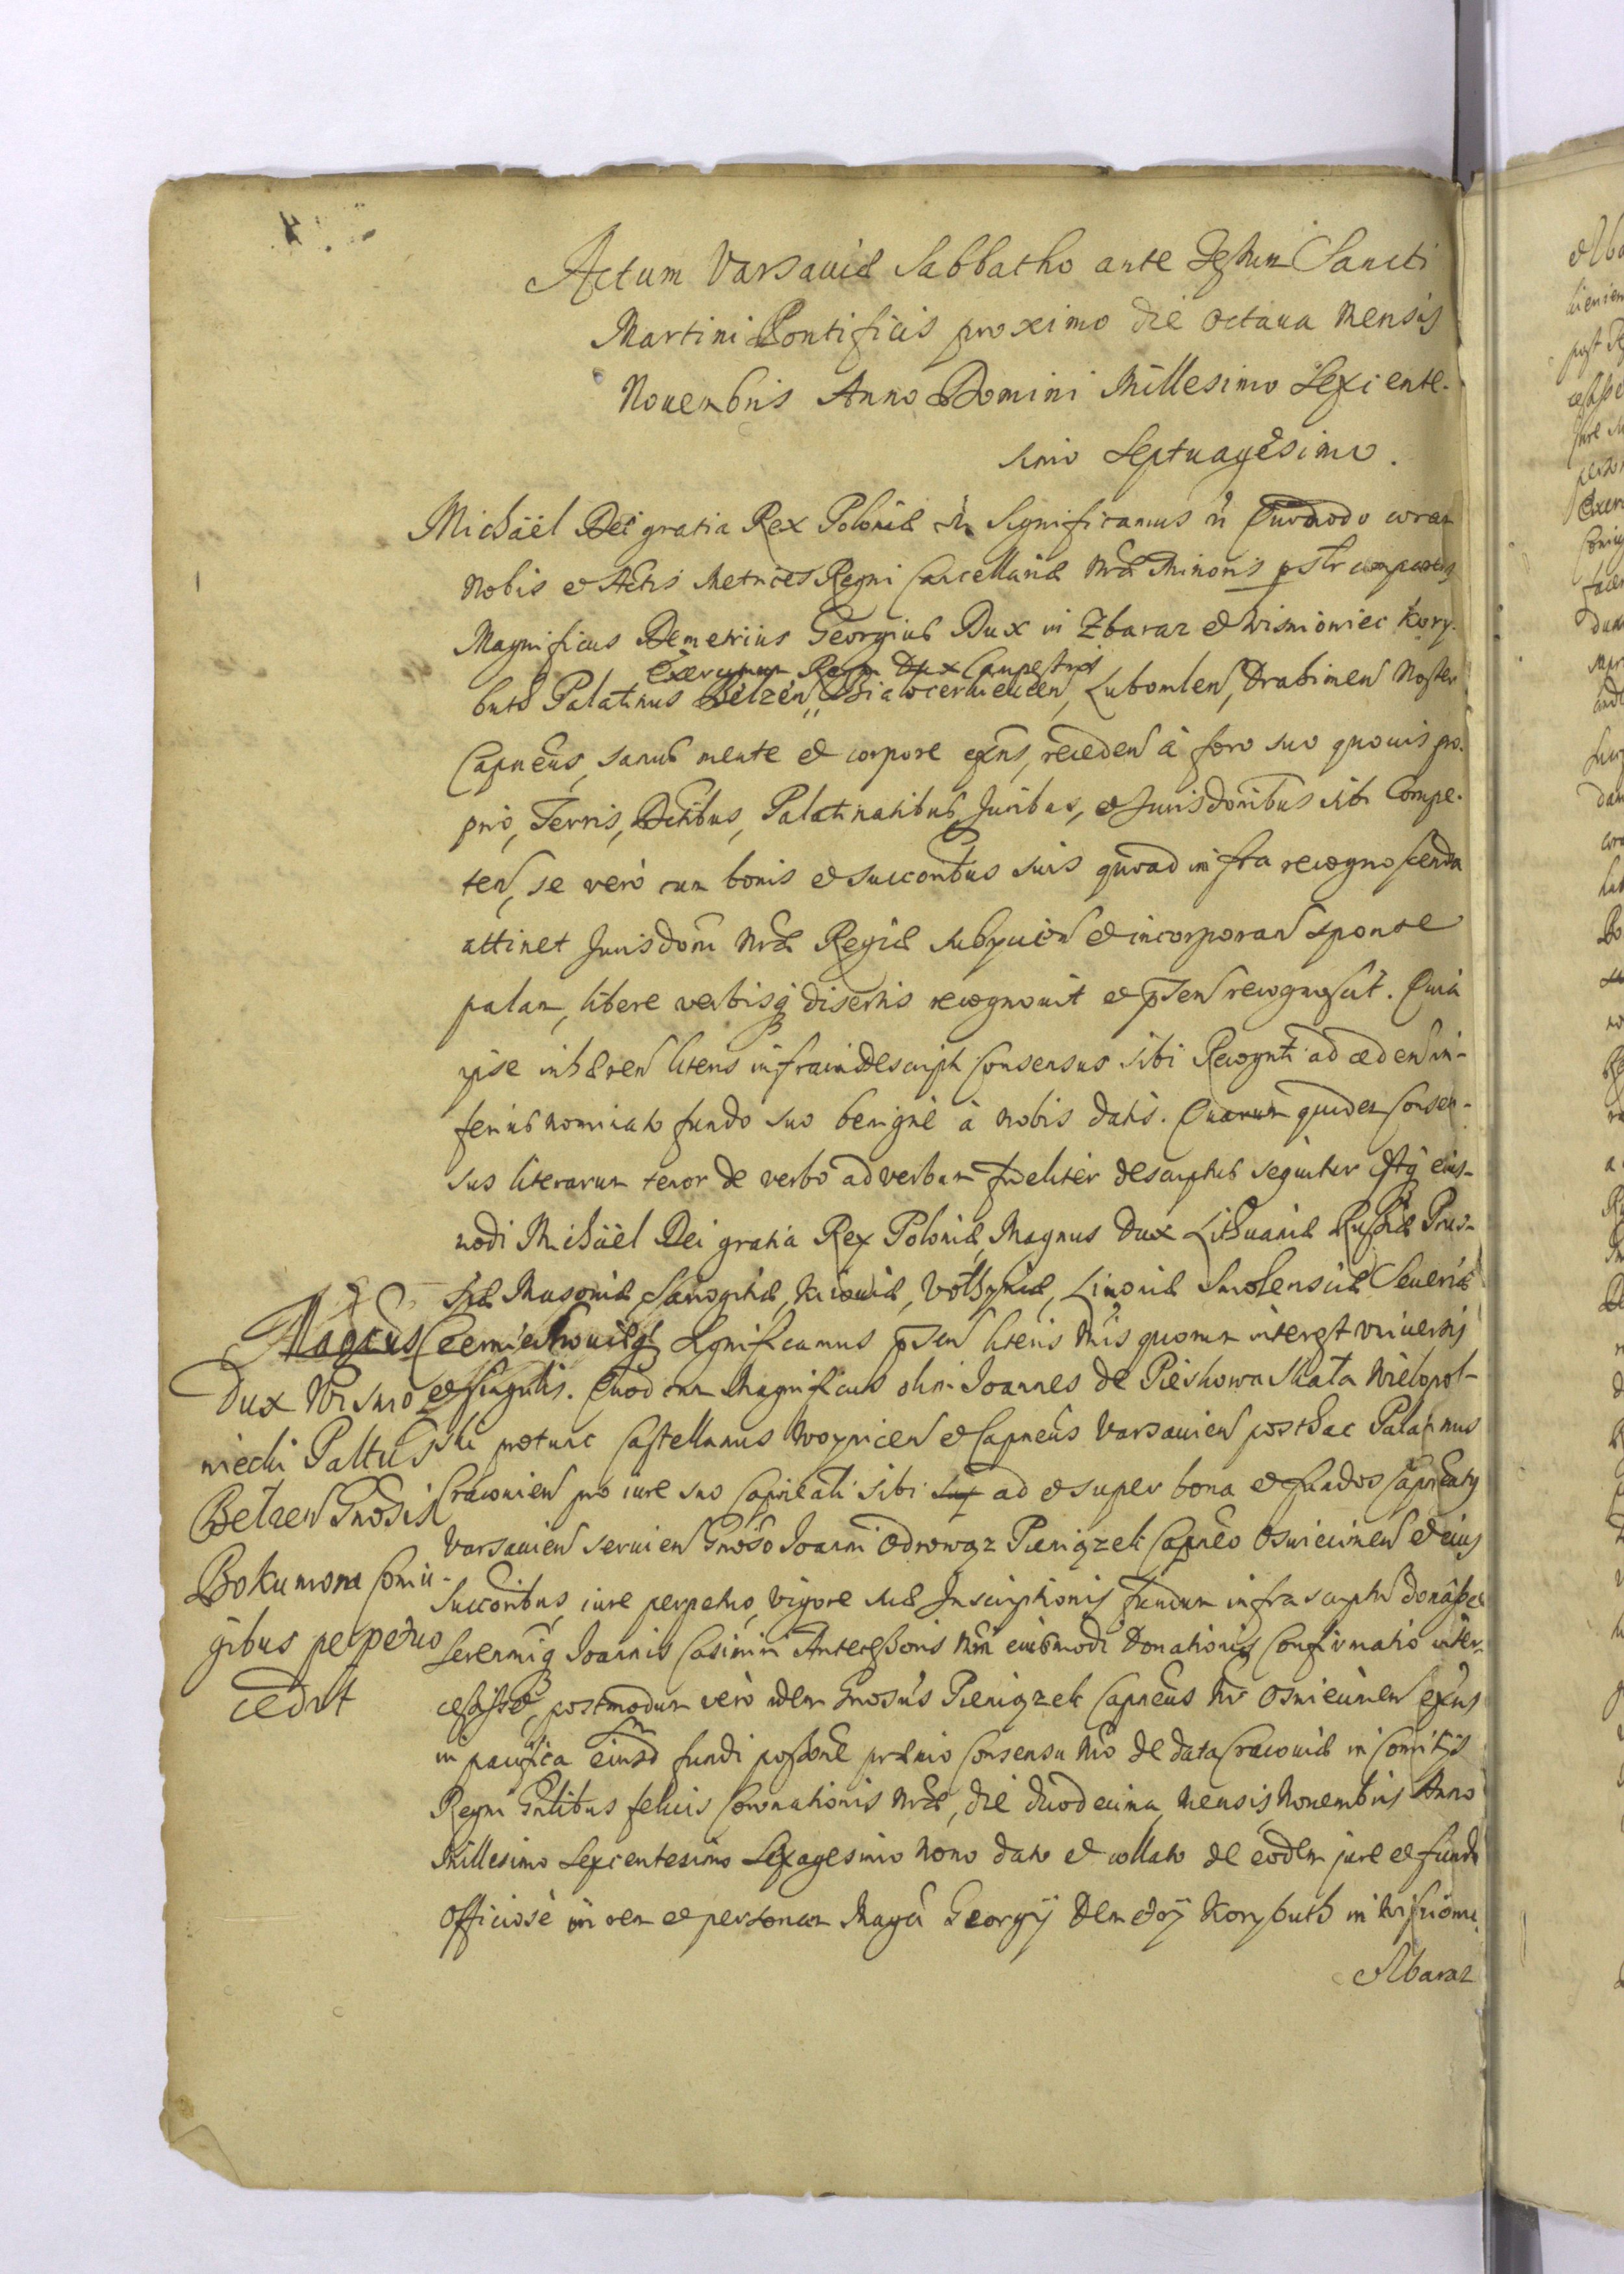 Actum Varsauiæ Sabbatho ante Festum Sancti
Martini Pontificis proximo die octaua Mensis
Nouembris Anno Domini Millesimo Sexcente-
simo Septuagesimo.
Michäel Dei gratia Rex Poloniæ Significamus Quomodo coram
Nobis et Actis Metrices Regni Cancellariæ Nræ Minoris comparens
Magnificus Demetrius Georgius Dux in Zbaraz et Wisniowiec Kory-
Exercituum Regni Dux Campestris
buth Palatinus Belzen, Bialocerkieuien, Lubomlen, Drahimen Noster
Capneus, sanus mente et corpore exns, receden à foro suo quouis pro-
prio, Terris, Dctibus, Palatinatibus, Juribus, et Jurisdonibus sibi Compe-
ten, se verò cum bonis et succoribus suis quoad infra recognoscenda
attinet Jurisdoni Nræ Regiæ subijcien et incorporan sponte
palam, libere verbisq disertis recognouit et pnsen recognoscit. Quia
ipse inhæren literis infraindescript Consensus sibi Recognti ad eden in-
ferius nominato fundo suo benignè à Nobis datis. Quarum quidem Consen-
sus literarum tenor de verbo ad verbum fideliter descriptus sequitur estq eius-
modi Michäel Dei gratia Rex Poloniæ, Magnus Dux Lithuaniæ Russiæ Prus-
siæ Masouiæ Samogitiæ, Kiouiæ, Volhyniæ, Liuoniæ Smolensciæ Seueriæ
Czerniechouiæq Significamus pnsen literis Nris quorum interest vniuersis
et singulis. Quod cum Magnificus olim Joannes de Pieskowa Skała Wielopol-
ski protunc Castellanus Woynicen et Capneus Varsauien posthac Palatinus
Cracouien pro iure suo Capneali sibi ad et super bona et fundos Capneatus
Varsauien seruien Gnoso Joanni Odrowąz Pieniązek Capneo Oswiecimen et eius
Succoribus, iure perpetuo, vigore suæ Inscriptionis fundum infrascriptu donasset
Serenmiq Joannis Casimiri Antecessoris Nri eiusmodi Donationis Confirmatio inter-
cessisset, postmodum verò idem Gnosus Pieniązek Capneus Nr Oswiecimen exns
in pacifica eiusd fundi possone præuio Consensu Nro de data Cracouiæ in Comitijs
Regni Gnlibus felicis Coronationis Nræ, die duodecima, Mensis Nouembris Anno
Millesimo Sexcentesimo Sexagesimo Nono dato et collato de eodem jure et fundo
Officiosè in rem et personam Magci Georgij Demetrij Korybuth in Wisniowi.
et Zbaraz
Magcus
Dux Wisnio
wiecki Paltus
Belzen Gnosis
Bokumona Coniu-
gibus perpetuo
cedit